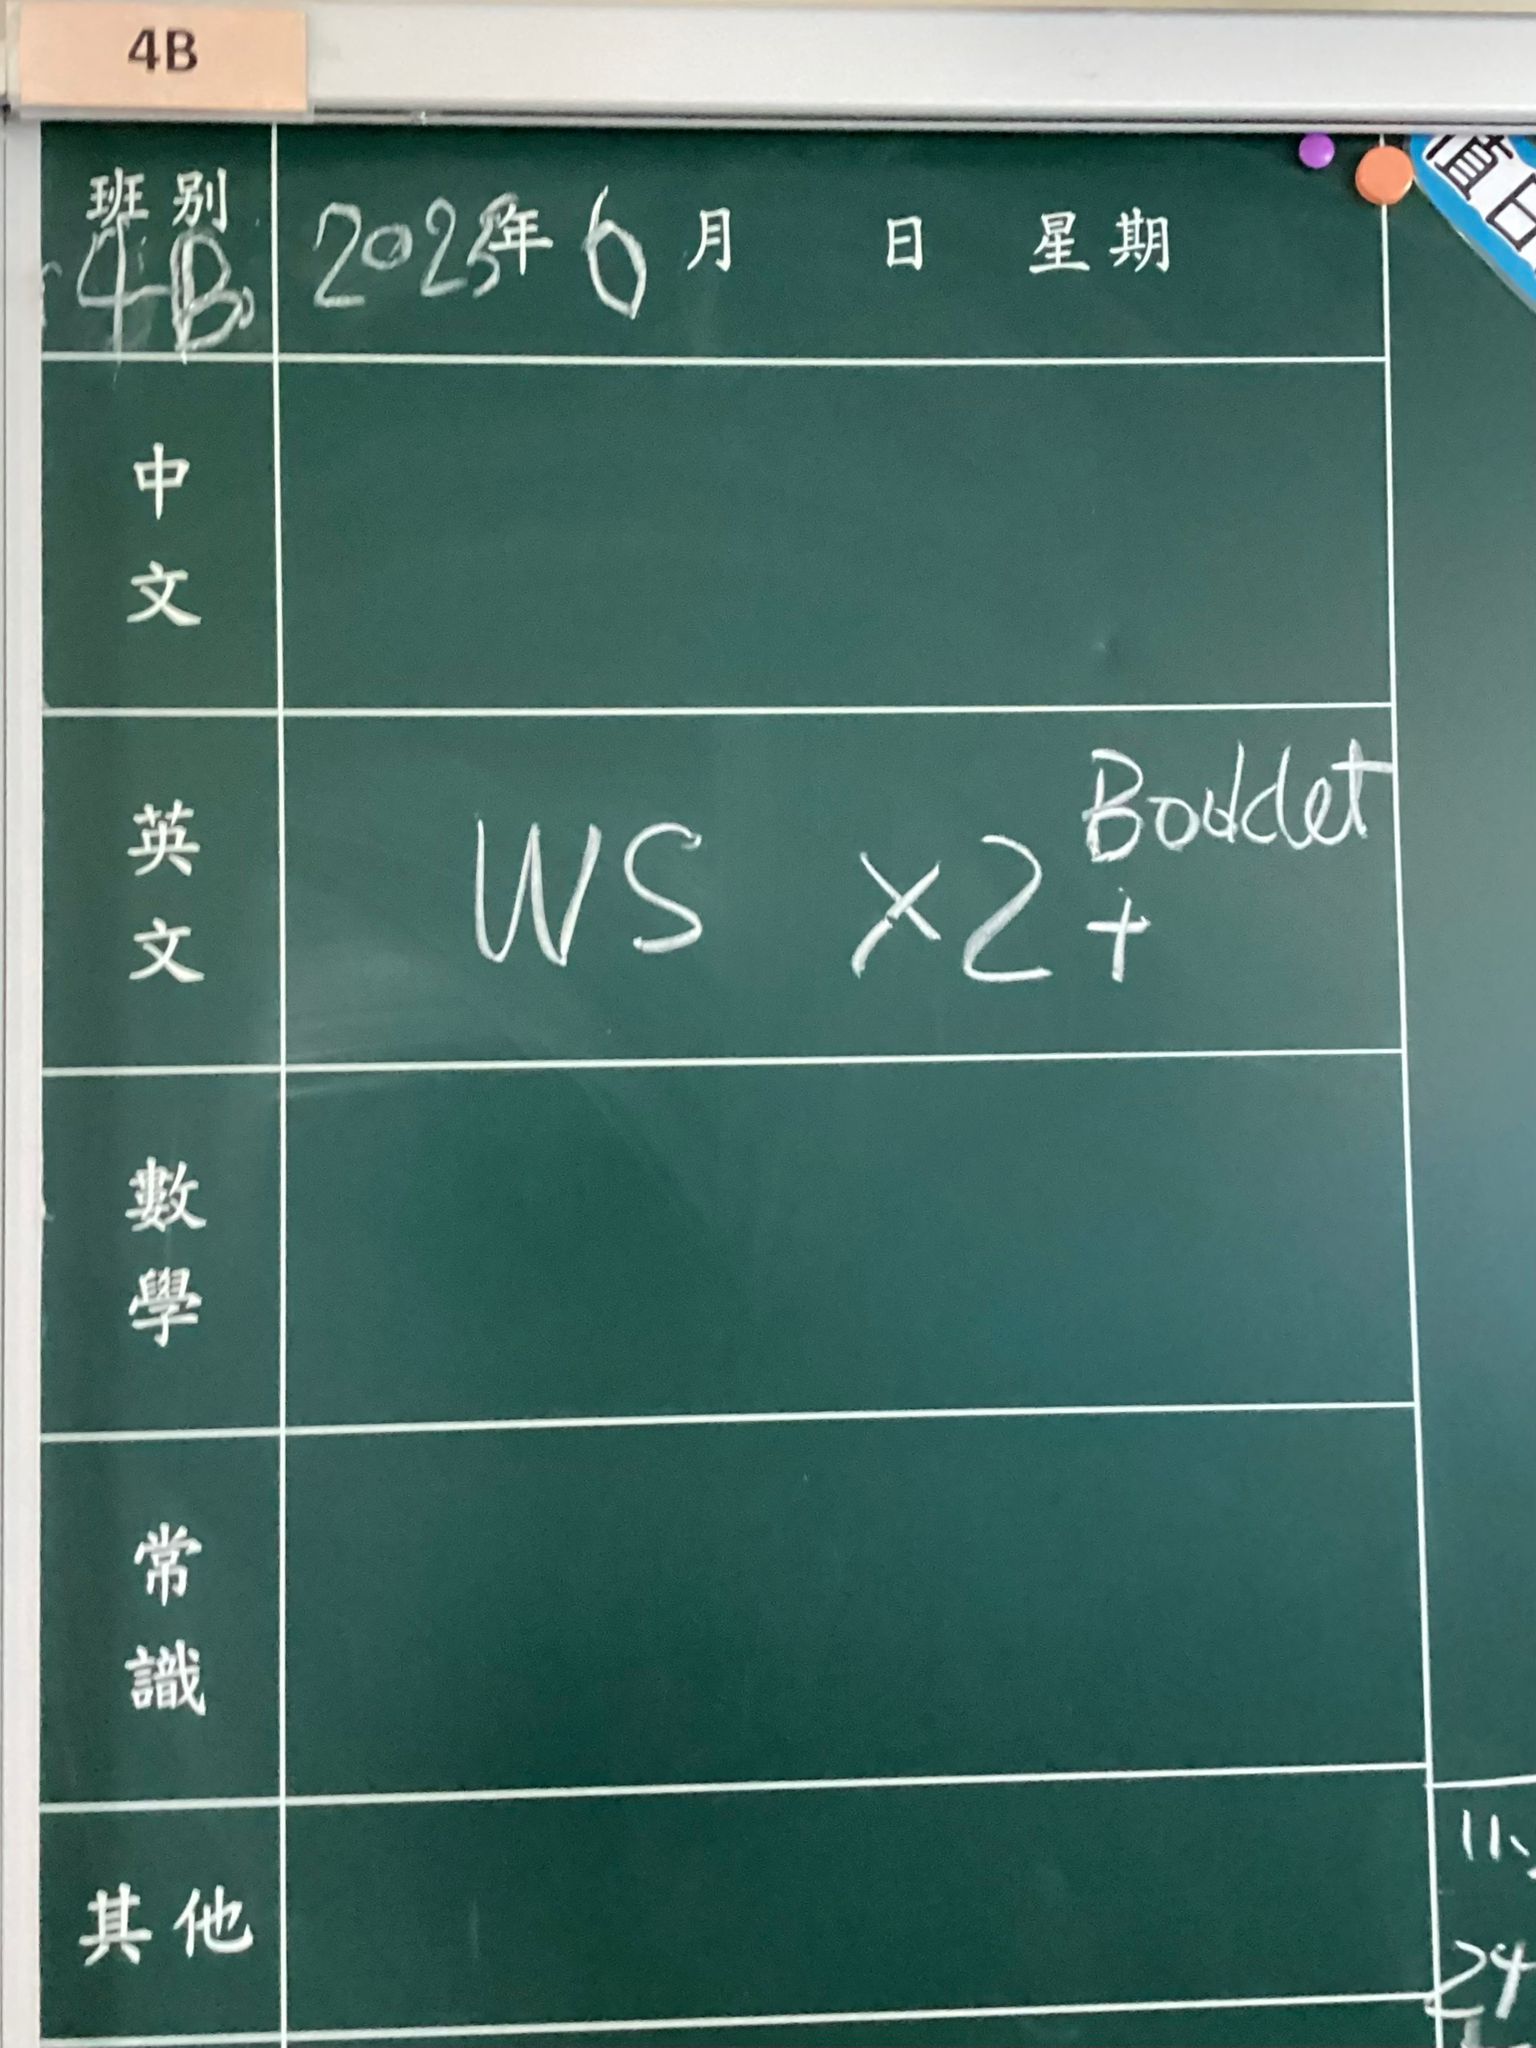 4B
班別
4B
2023年 6 月 日 星期
中文
英文
WS ×2 + Booklet
數學
常識
其他
值日
11、
24